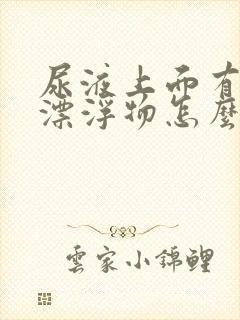 尿液上面有
漂浮物怎麼
雲家小錦鯉